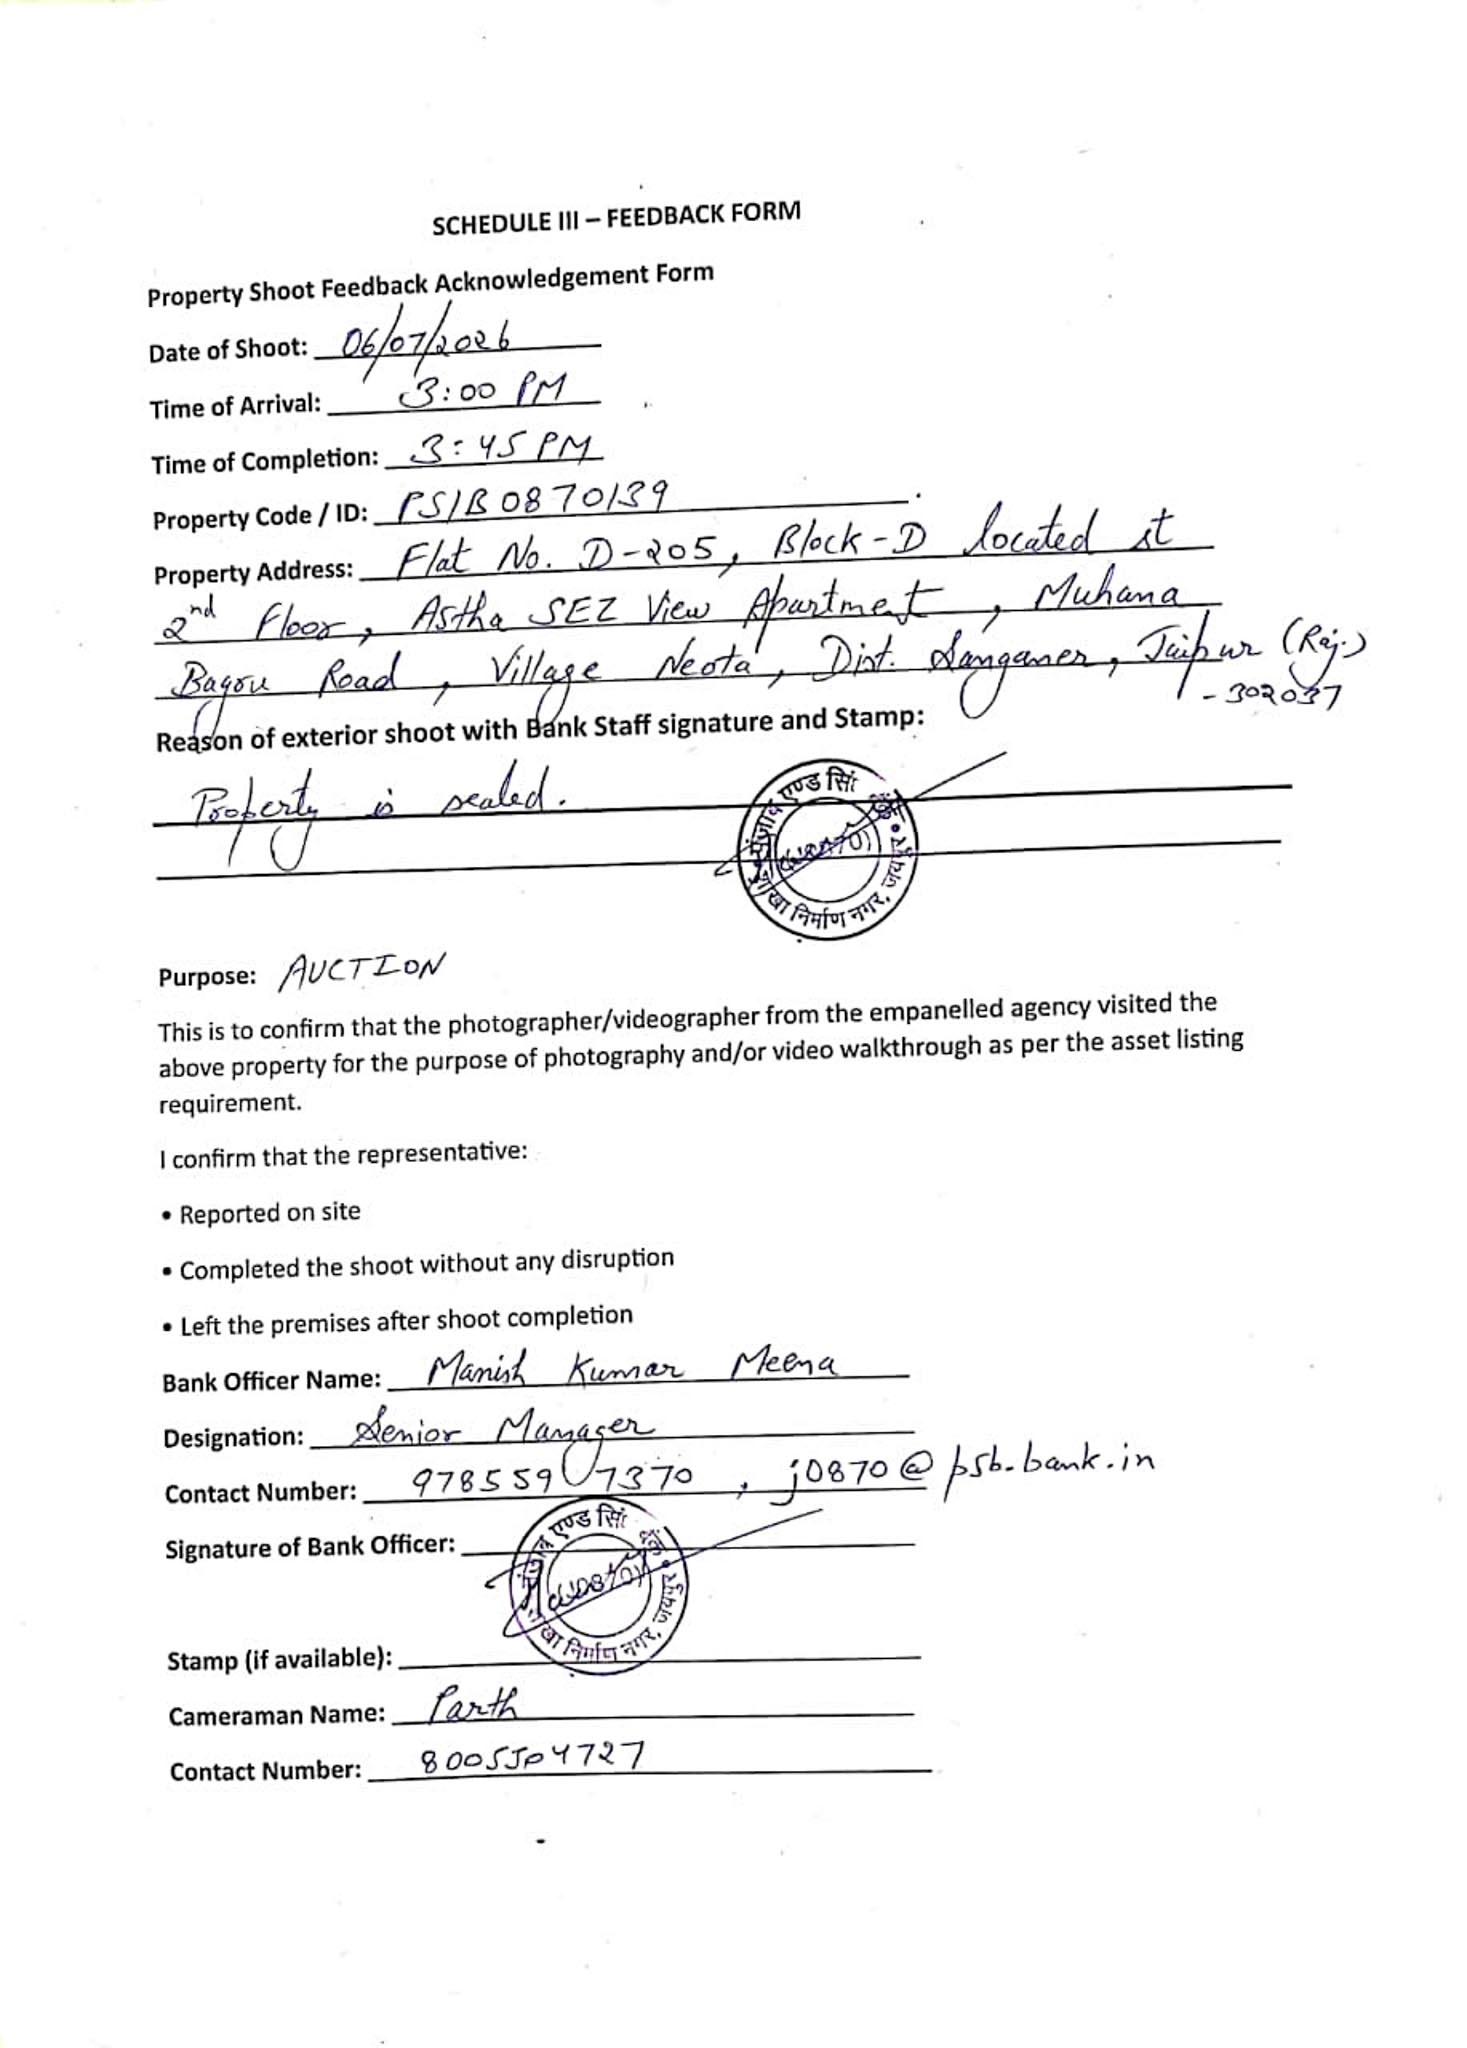 SCHEDULE III – FEEDBACK FORM
Property Shoot Feedback Acknowledgement Form
Date of Shoot: 06/07/2026
Time of Arrival: 3:00 PM
Time of Completion: 3:45 PM
Property Code / ID: PSIB0870139
Property Address: Flat No. D-205, Block-D located st
2nd Floor, Astha SEZ View Apartment, Muhana
Bagou Road, Village Neota, Dist. Sanganer, Jaipur (Raj.)
- 302037
Reason of exterior shoot with Bank Staff signature and Stamp:
Property is sealed.
पंजाब एण्ड सिंध बैंक
शाखा निर्माण नगर, जयपुर
Purpose: AUCTION
This is to confirm that the photographer/videographer from the empanelled agency visited the
above property for the purpose of photography and/or video walkthrough as per the asset listing
requirement.
I confirm that the representative:
• Reported on site
• Completed the shoot without any disruption
• Left the premises after shoot completion
Bank Officer Name: Manish Kumar Meena
Designation: Senior Manager
Contact Number: 9785597370, j0870@psb.bank.in
Signature of Bank Officer:
पंजाब एण्ड सिंध बैंक
शाखा निर्माण नगर, जयपुर
Stamp (if available):
Cameraman Name: Parth
Contact Number: 8005504727